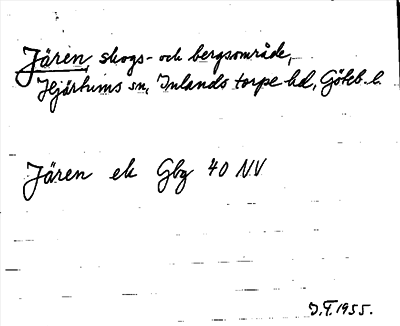 Jären skogs- och bergsområde,
Hjärtums sn, Inlands torpe hd, Göteb. l.
Jären ek Gbg 40 NV
J.F. 1955.